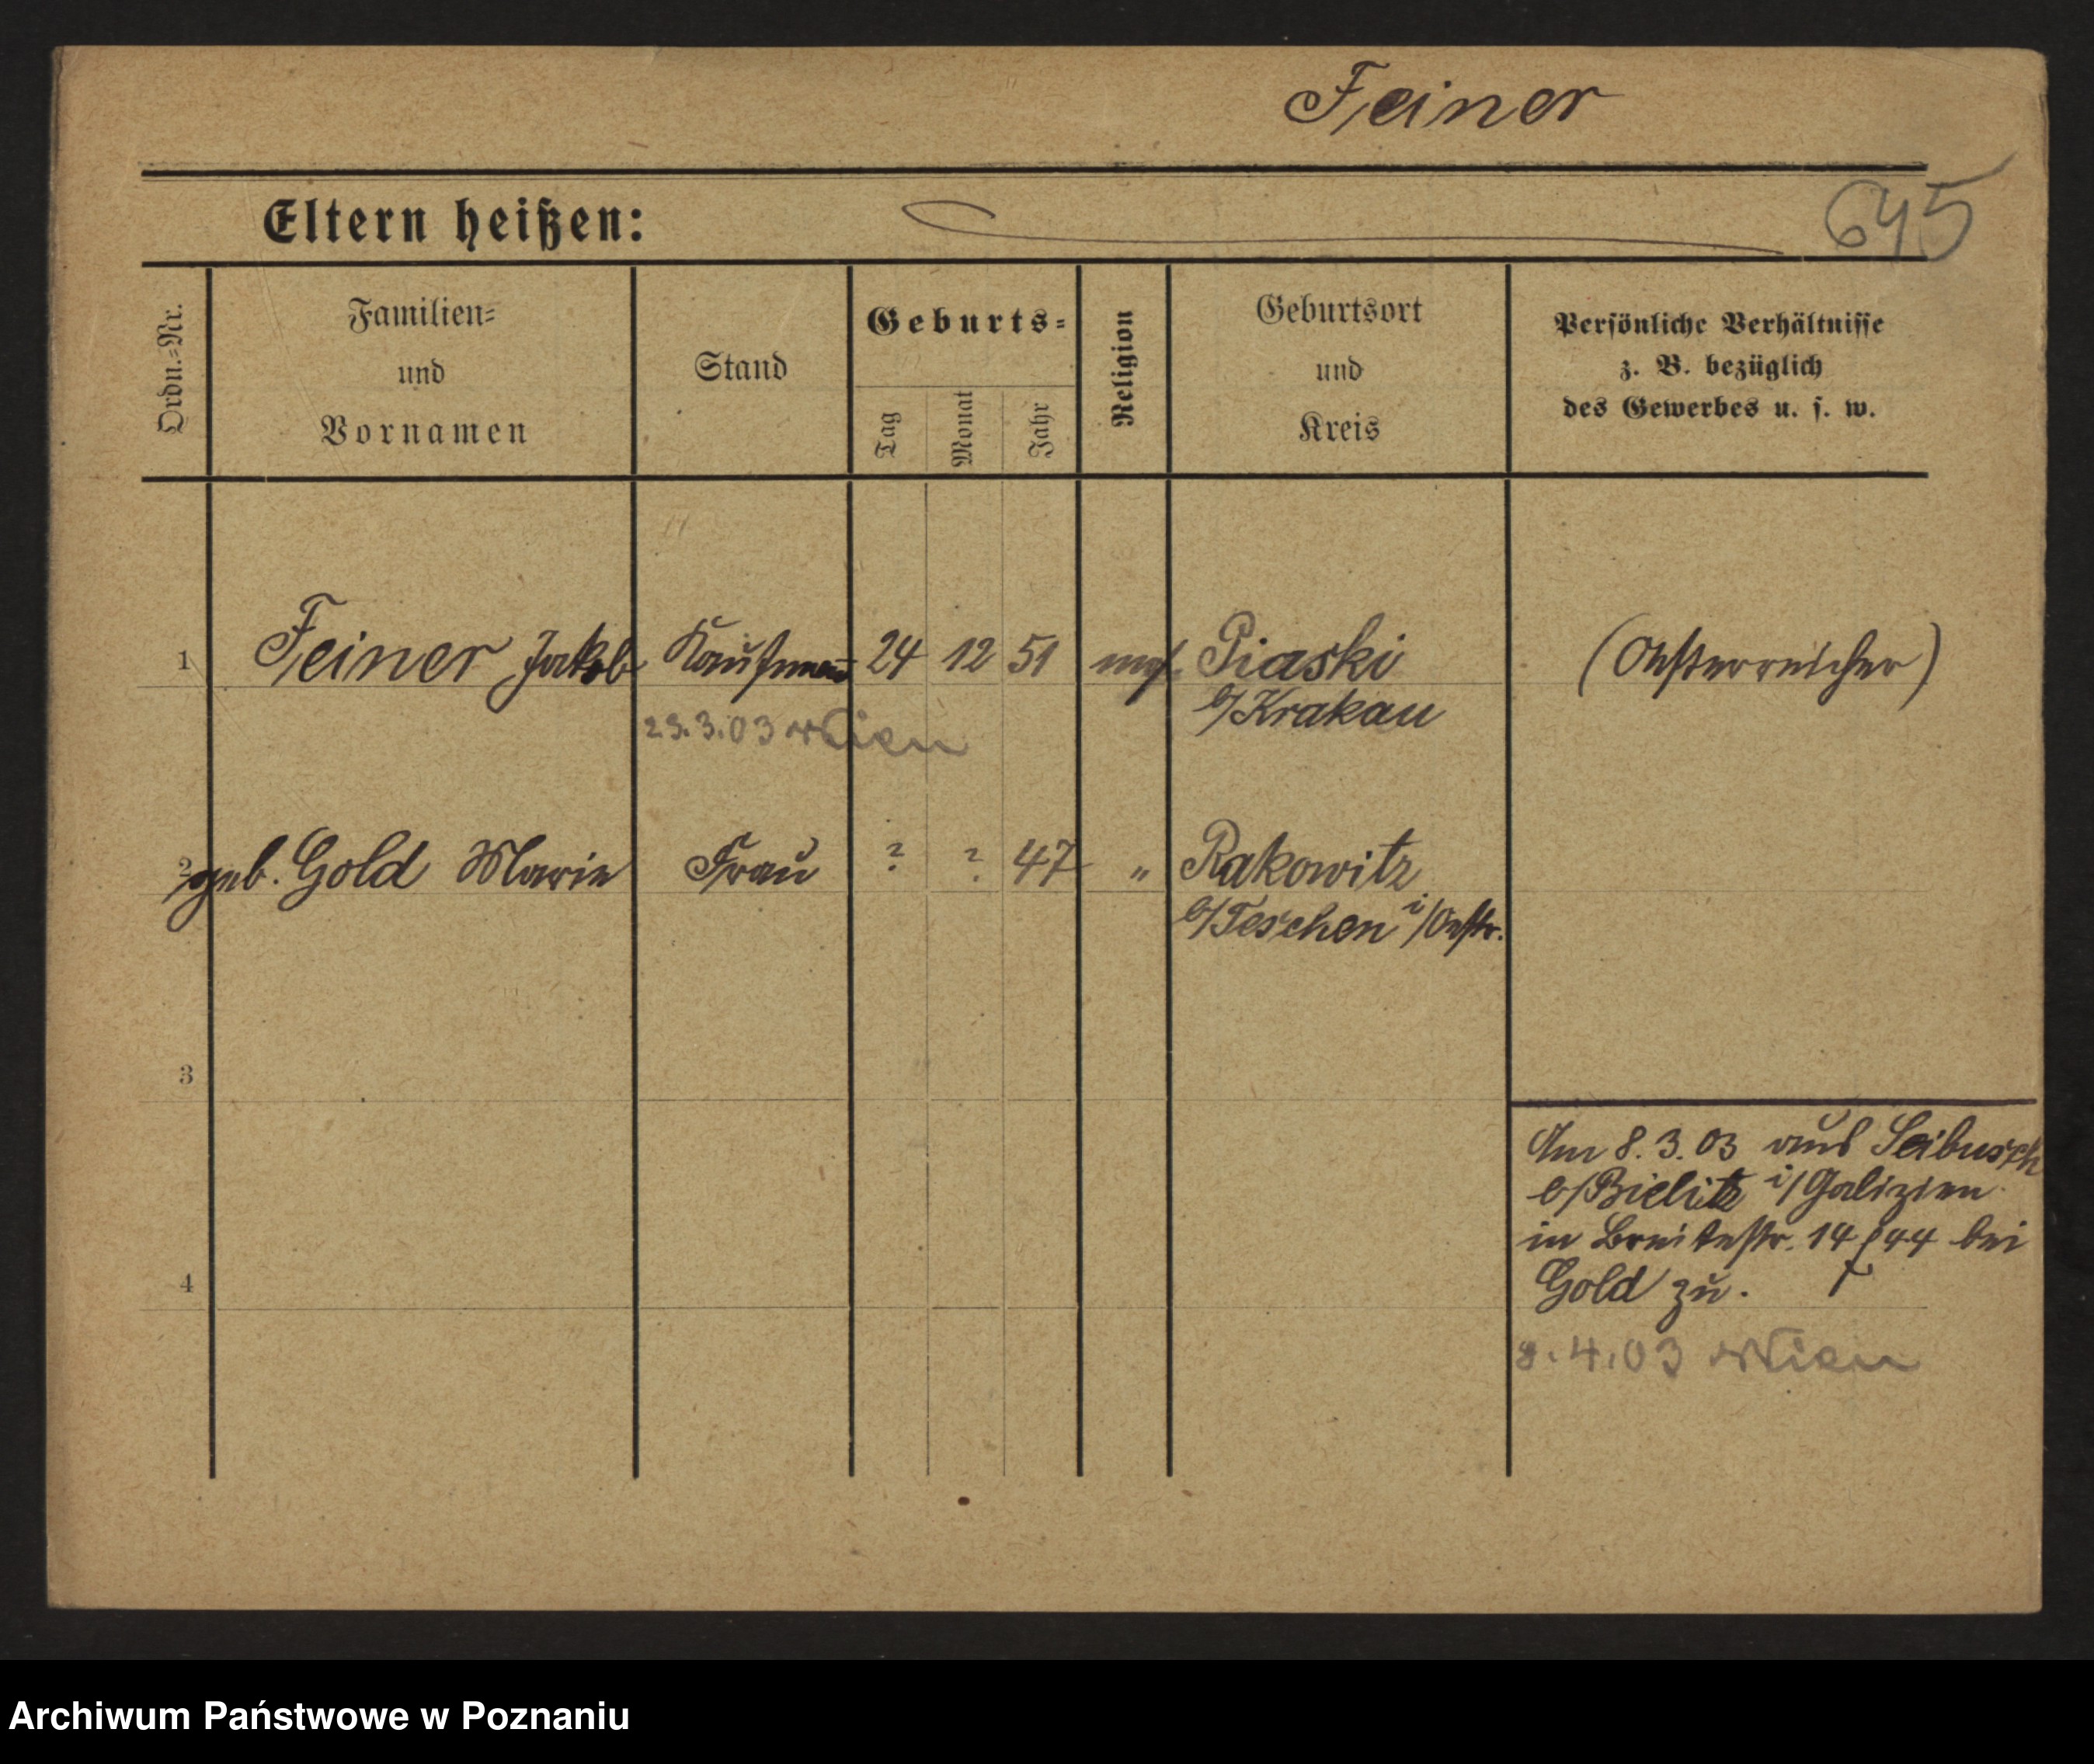 Feiner
645
Eltern heißen:
Ordn.=Nr.
Familien=
und
Vornamen
Stand
Geburts=
Tag
Monat
Jahr
Religion
Geburtsort
und
Kreis
Persönliche Verhältnisse
z. B. bezüglich
des Gewerbes u. s. w.
1 Feiner Jakob Kaufmann 24 12 51 mos. Piaski (Oesterreicher)
b/Krakau
23.3.03 Wien
2 geb. Gold Marie Frau ? ? 47 " Rakowitz
b/Teschen i/Oestr.
3
Am 8.3.03 aus Seibusch
b/Bielitz i/Galizien
in Breitestr. 14 bei
4
Gold zu.
8.4.03 Wien
Archiwum Państwowe w Poznaniu